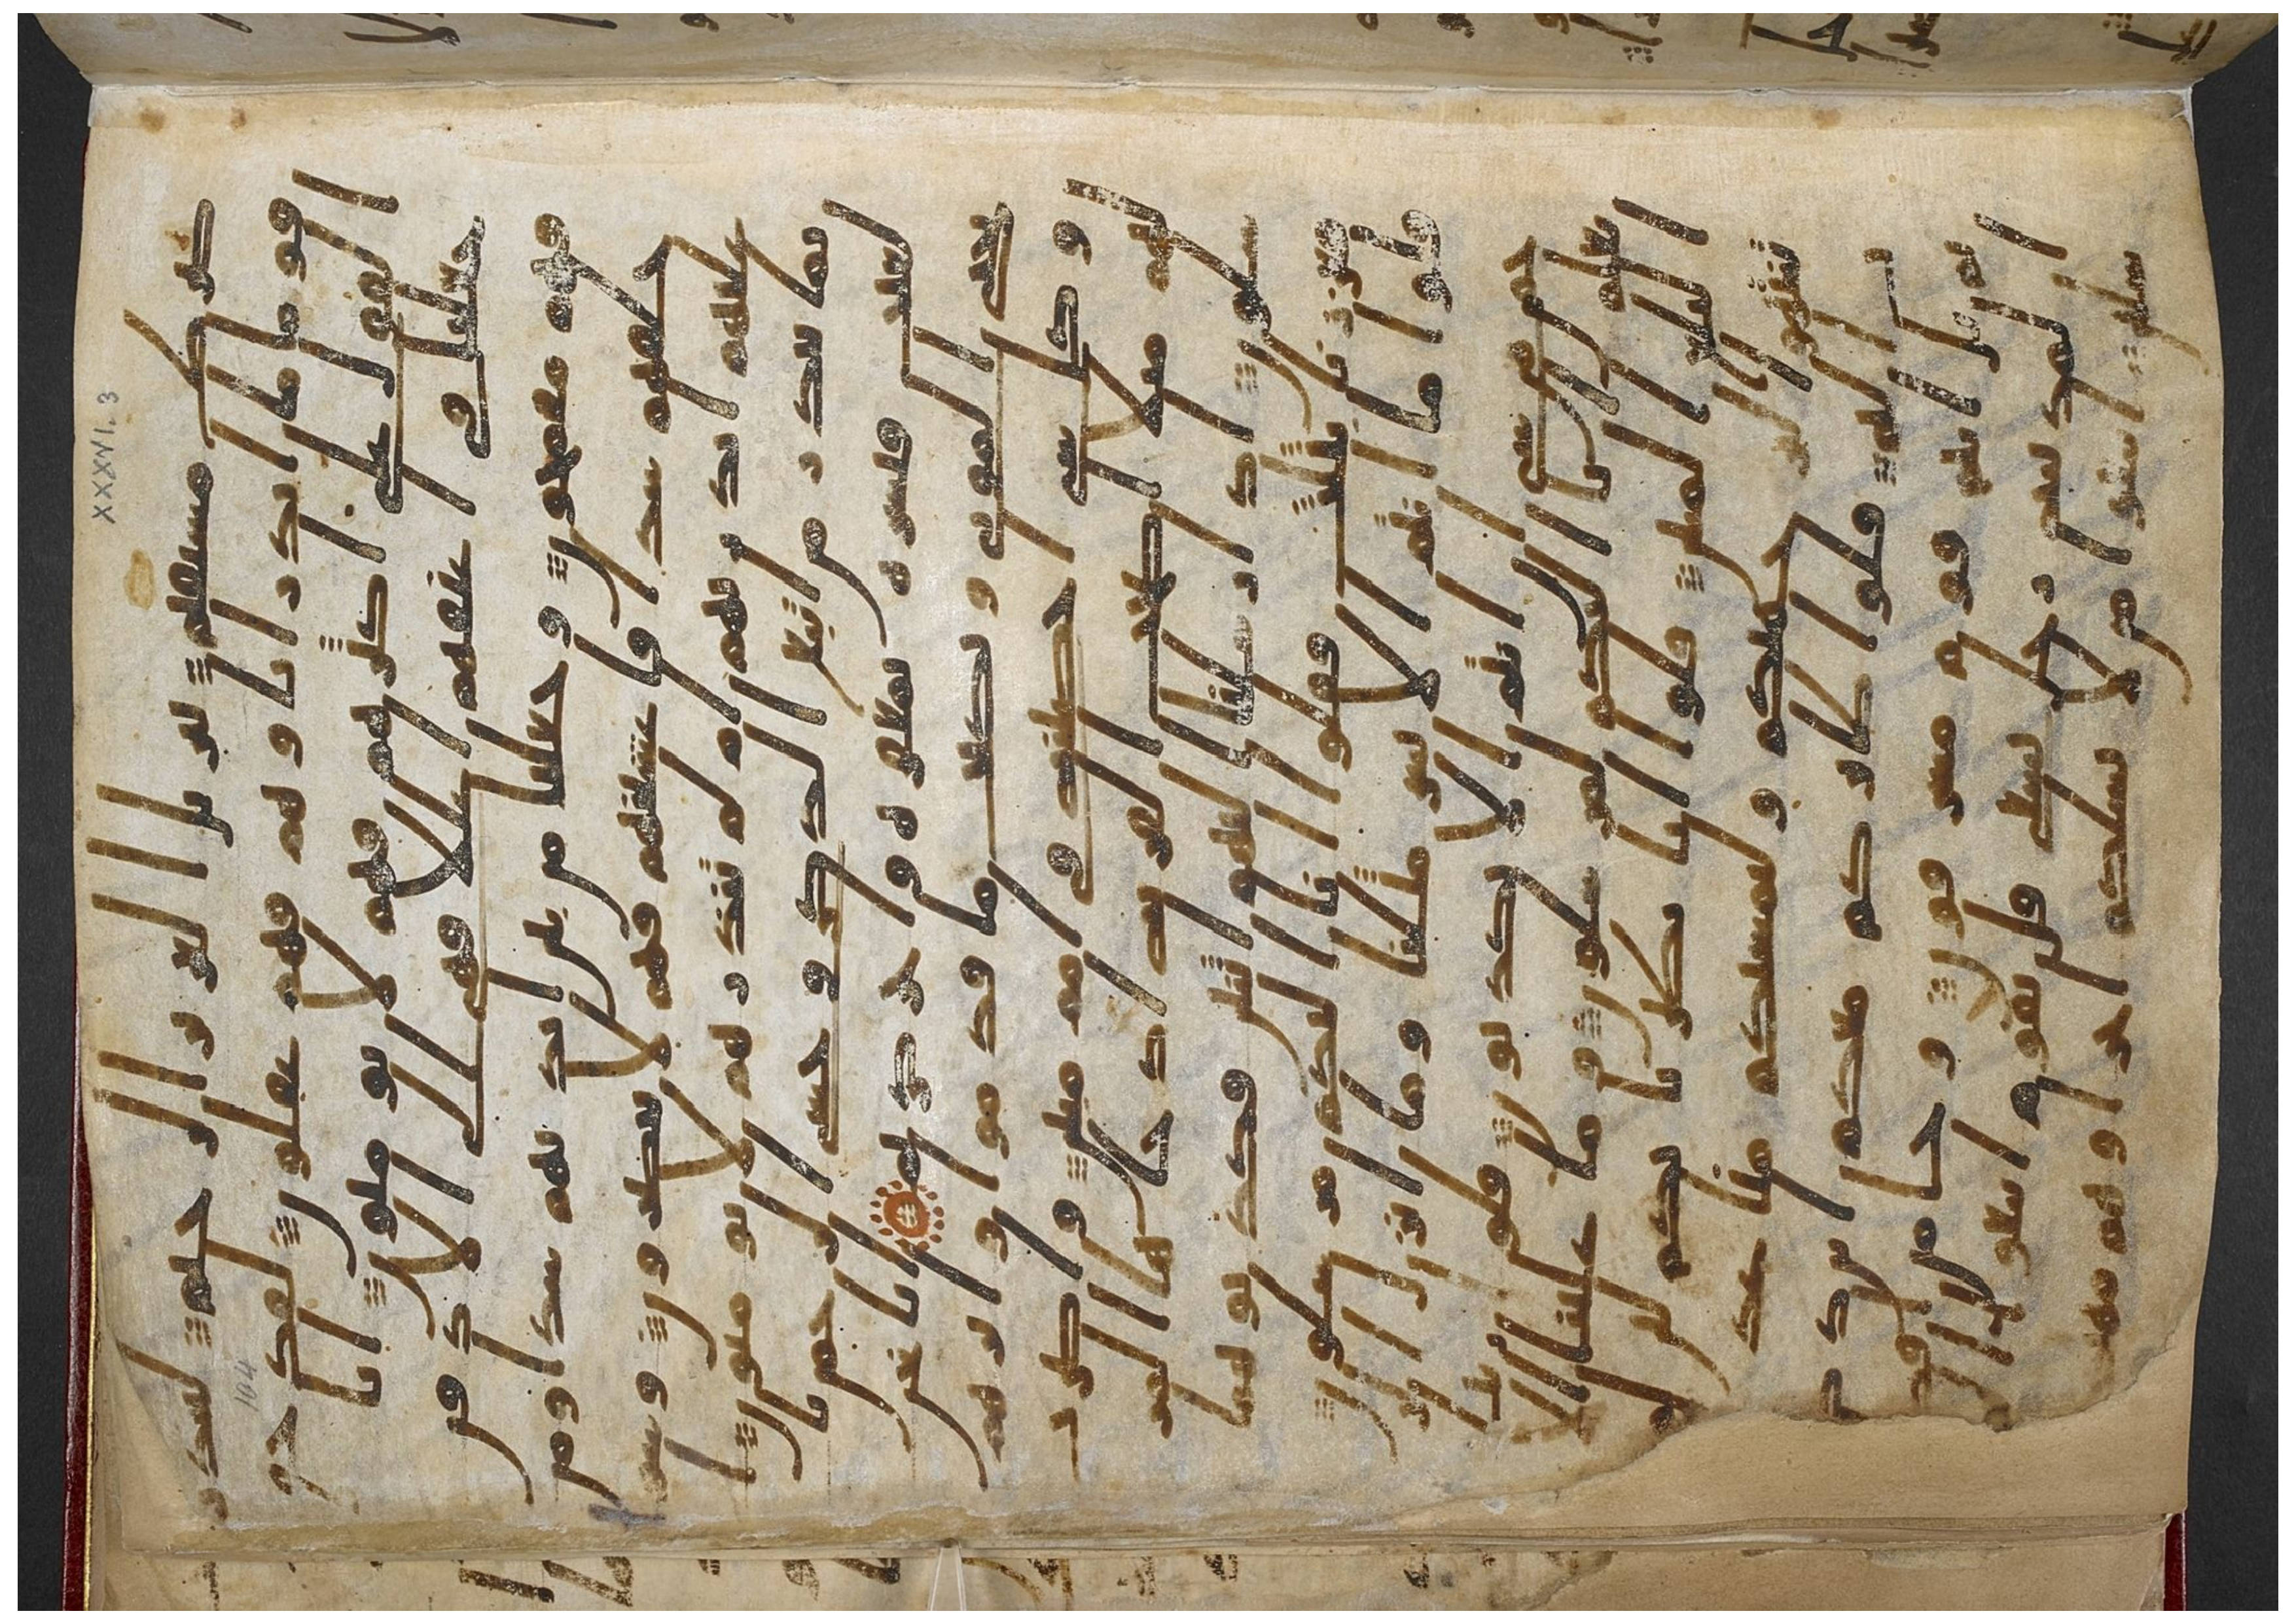 على صرط مستقيم تنزيل العزيز الرحيم لتنذر
قوما ما انذر اباوهم فهم غفلون لقد حق
القول على اكثرهم فهم لا يومنون انا
جعلنا في اعنقهم اغللا فهي الى الاذقن
فهم مقمحون وجعلنا من بين ايديهم سدا ومن
خلفهم سدا فاغشينهم فهم لا يبصرون وسو
ا عليهم انذرتهم ام لم تنذرهم لا يومنون ا
نما تنذر من اتبع الذكر وخشي الرحمن با
لغيب فبشره بمغفره واجر كريم انا نحن
نحي الموتى ونكتب ما قدموا واثرهم
وكل شي احصينه في امم مبين واضر
ب لهم مثلا اصحب القريه اذ جاها المر
سلون اذ ارسلنا اليهم اثنين فكذبوهما
فعززنا بثلث فقالوا انا اليكم مرسلون
قالوا ما انتم الا بشر مثلنا وما انزل ا
لرحمن من شي ان انتم الا تكذبون قالوا ربنا
يعلم انا اليكم لمرسلون وما علينا الا
البلغ المبين قالوا انا تطيرنا بكم لين لم
تنتهوا لنرجمنكم وليمسنكم منا عذب
اليم قالوا طيركم معكم اين ذكرتم
بل انتم قوم مسرفون وجا من اقصا
المدينه رجل يسعى قال يقوم اتبعوا ا
لمرسلين اتبعوا من لا يسلكم اجرا وهم مهتد
XXXVI. 3
104